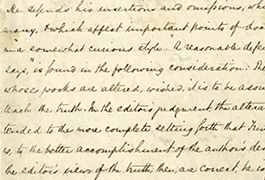 He defends his insertions and omissions, wh
many, & which affect important points of do
in a somewhat curious style. A reasonable defe
says," is found in the following consideration: The
whose books are altered, wished, it is to be assu
teach the truth. In the editor's judgment, the altera
tended to the more complete setting forth that Tru
is, to the better accomplishment of the author's des
he editor's views of the truth, then, as correct, he is